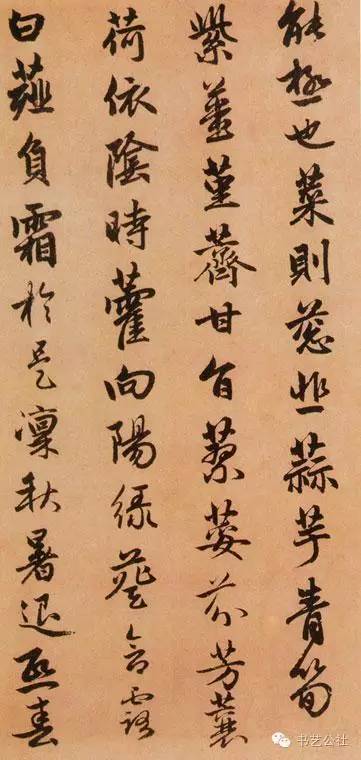 能極也菜則葱韭蒜芋青筍
紫薑堇薺甘旨蓼荾芬芳蘘
荷依陰時藿向陽緑葵含露
白薤負霜於是凜秋暑退熙春
书艺公社